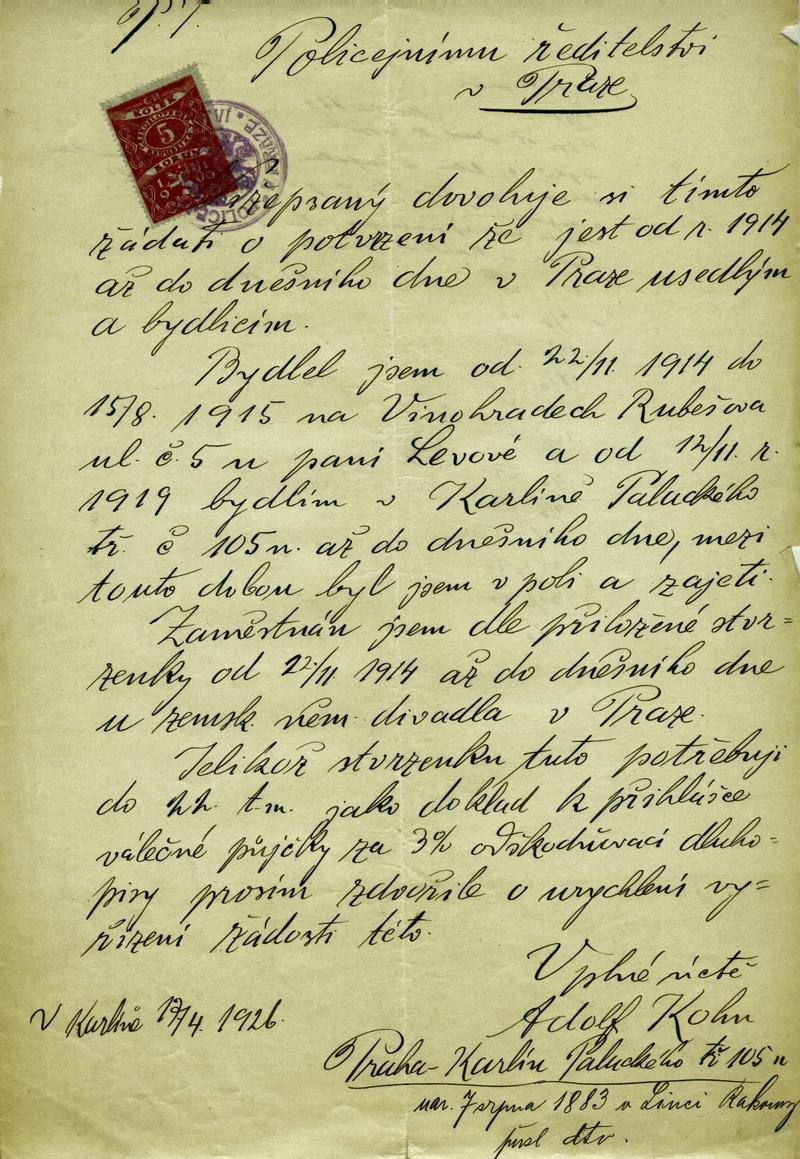 Policejnímu ředitelství
v Praze
KOLEK
5
KORUN
Nížepsaný dovoluje si tímto
žádati o potvrzení že jest od r. 1914
až do dnešního dne v Praze usedlým
a bydlícím.
Bydlel jsem od 22/11. 1914 do
15/8. 1915 na Vinohradech Rubešova
ul. č. 5 u paní Levové a od 12/11. r.
1919 bydlím v Karlíně Palackého
tř. č 105 n. až do dnešního dne, mezi
touto dobou byl jsem v poli a zajetí.
Zaměstnán jsem dle přiložené stvr=
zenky od 22/11 1914 až do dnešního dne
u zemsk. něm. divadla v Praze.
Jelikož stvrzenku tuto potřebuji
do 22. t.m. jako doklad k přihlášce
válečné půjčky za 3% odškodňovací dluho=
pisy prosím zdvořile o urychlení vy=
řízení žádosti této.
V plné úctě
Adolf Kohn
V Karlíně 17/4. 1926.
Praha-Karlín Palackého tř 105 n
nar. 7 srpna 1883 v Linci Rakousy
přísl dtv.